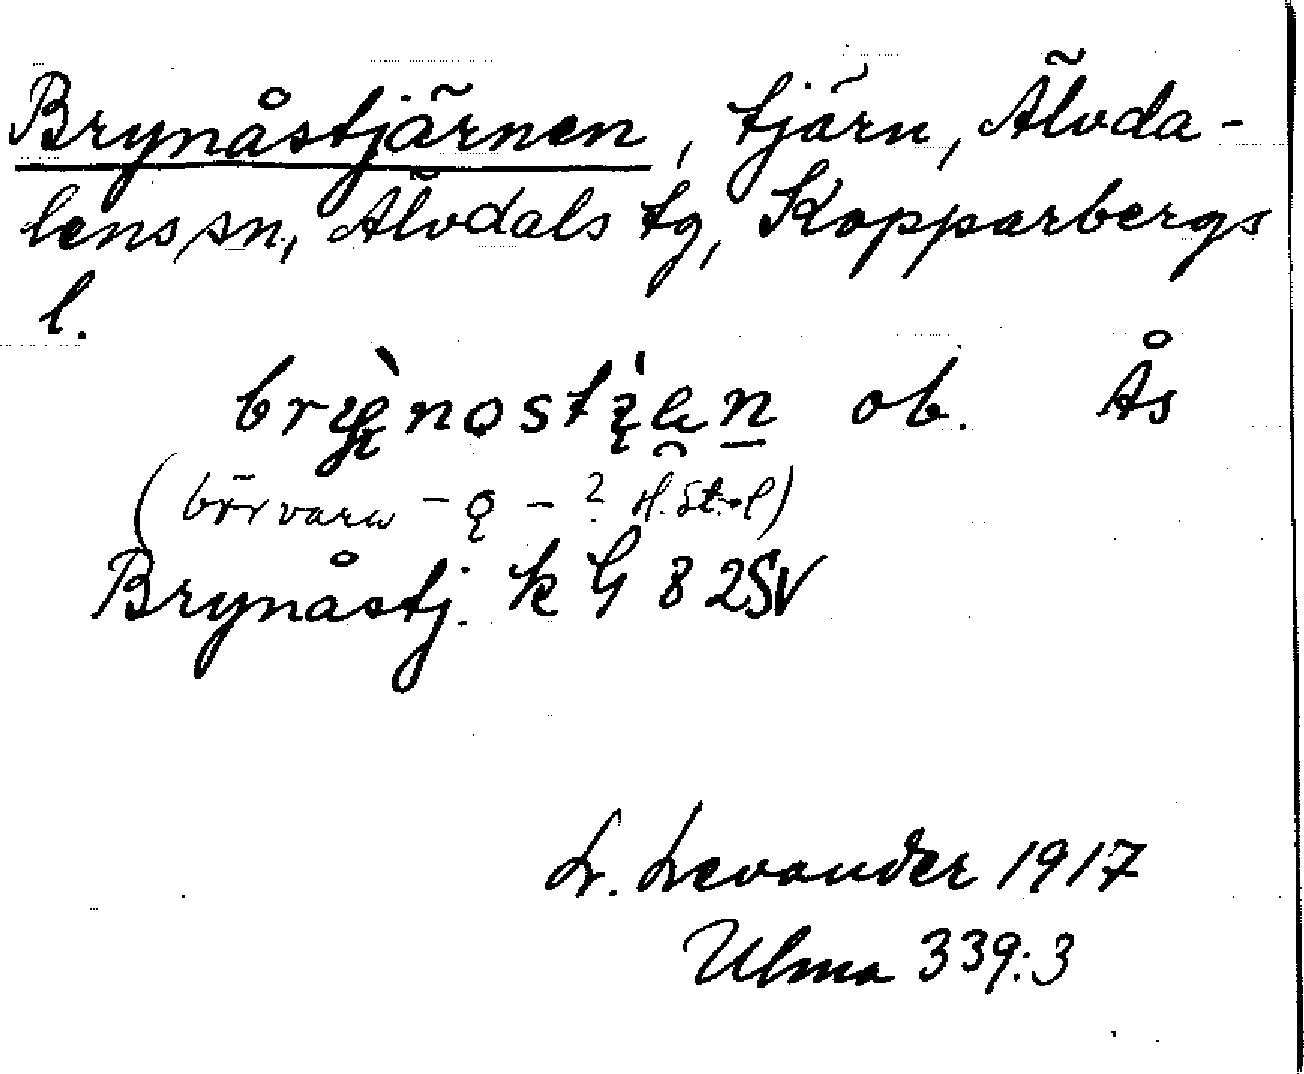 Brynåstjärnen, tjärn, Älvda-
lens sn, Älvdals tg, Kopparbergs
l.
ob. Ås
(bör vara - ǫ - ?
Brynåstj. k G 8 2SV
L. Levander 1917
Ulma 339:3